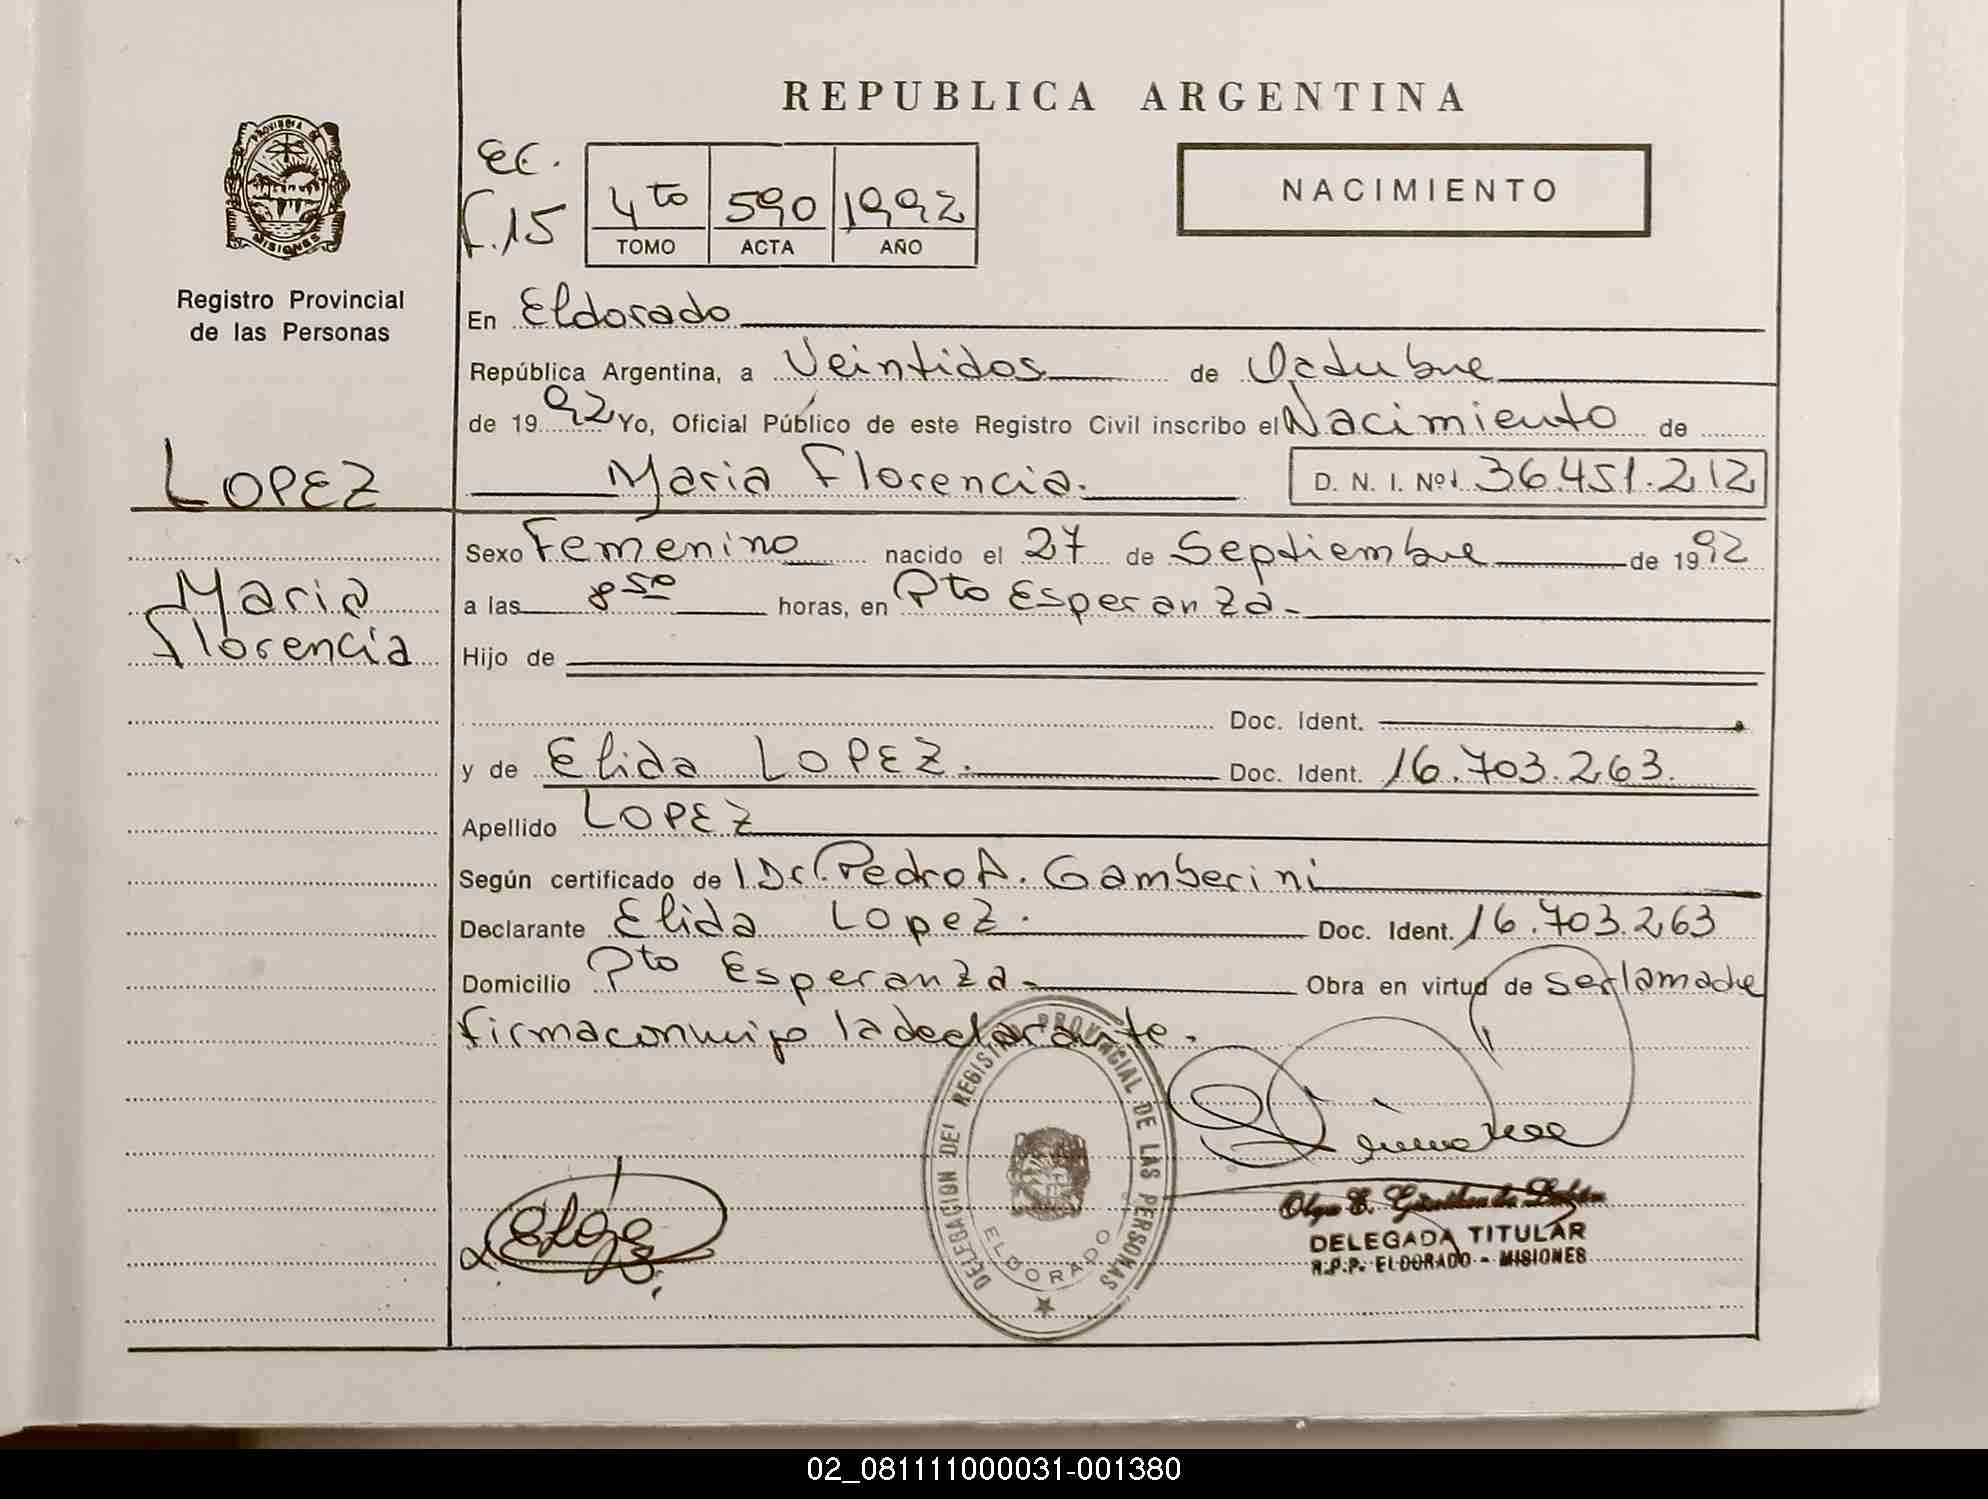 REPUBLICA ARGENTINA
PROVINCIA DE
MISIONES
Registro Provincial
de las Personas
EC.
F.15
4to 590 1992
TOMO ACTA AÑO
NACIMIENTO
En Eldorado
República Argentina, a Veintidos de Octubre
de 1992 Yo, Oficial Público de este Registro Civil inscribo el Nacimiento de
LOPEZ
Maria Florencia. D. N. I. Nº 36.451.212
Sexo Femenino nacido el 27 de Septiembre de 1992
Maria
a las 8 50 horas, en Pto Esperanza.
Florencia
Hijo de
Doc. Ident.
y de Elida LOPEZ. Doc. Ident. 16.703.263.
Apellido LOPEZ
Según certificado de Dr. Pedro A. Gamberini
Declarante Elida Lopez. Doc. Ident. 16.703.263
Domicilio Pto Esperanza. Obra en virtud de ser la madre
firma conmigo la declarante.
DELEGACION DEL REGISTRO PROVINCIAL DE LAS PERSONAS
ELDORADO
ELopez
Olga E.
DELEGADA TITULAR
R.P.P. ELDORADO - MISIONES
02_081111000031-001380